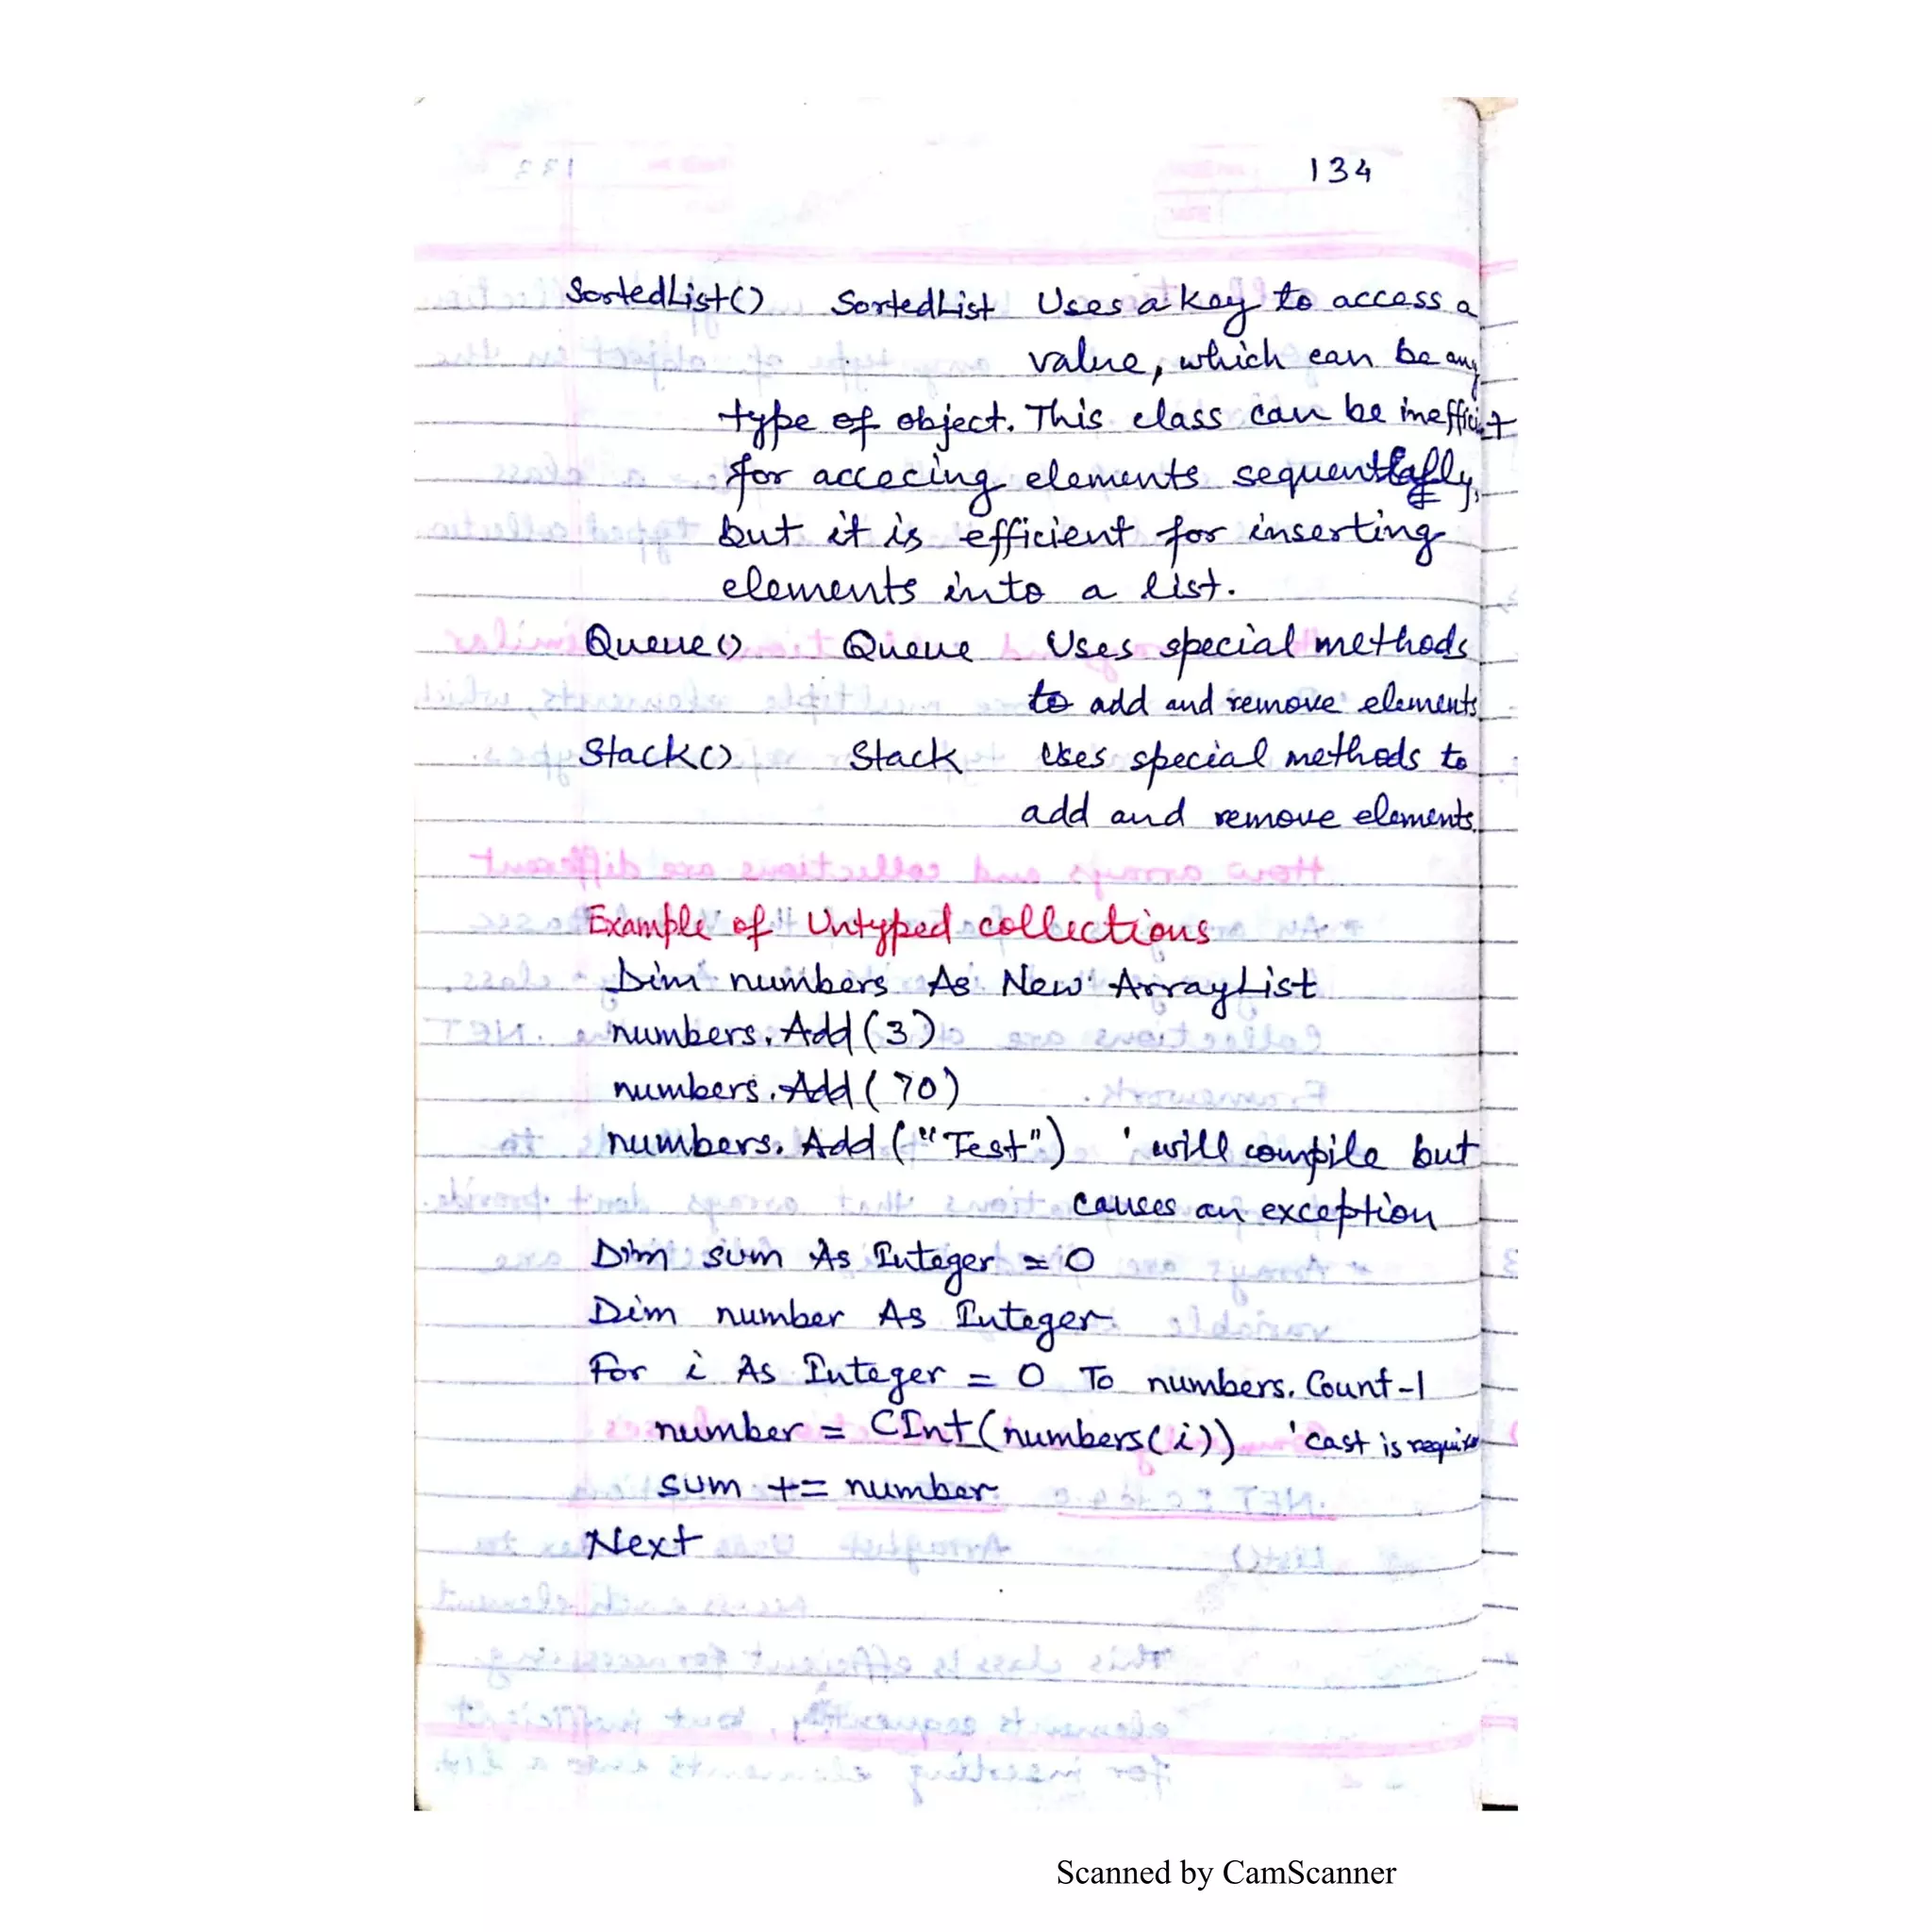 134
SortedList() SortedList Uses a key to access a
value, which can be any
type of object. This class can be inefficit
for accecing elements sequentially,
but it is efficient for inserting
elements into a list.
Queue() Queue Uses special methods
to add and remove elements
Stack() Stack Uses special methods to
add and remove elements.
Example of Untyped collections
Dim numbers As New ArrayList
numbers.Add(3)
numbers.Add(70)
numbers.Add("Test") ' will compile but
causes an exception
Dim sum As Integer = 0
Dim number As Integer
For i As Integer = 0 To numbers.Count-1
number = CInt(numbers(i)) 'cast is require
sum += number
Next
Scanned by CamScanner